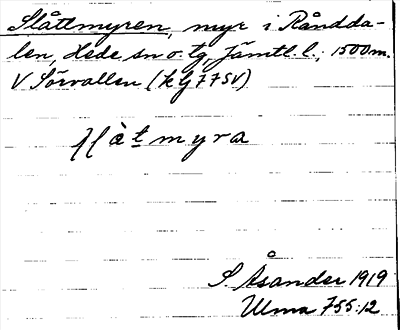 Slåttmyren, myr i Råndda-
len, Hede sn o. tg, Jämtl. l., 1500 m.
V Sörvallen (kbl 77 SV)
myra
S. Åsander 1919
Ulma 755:12